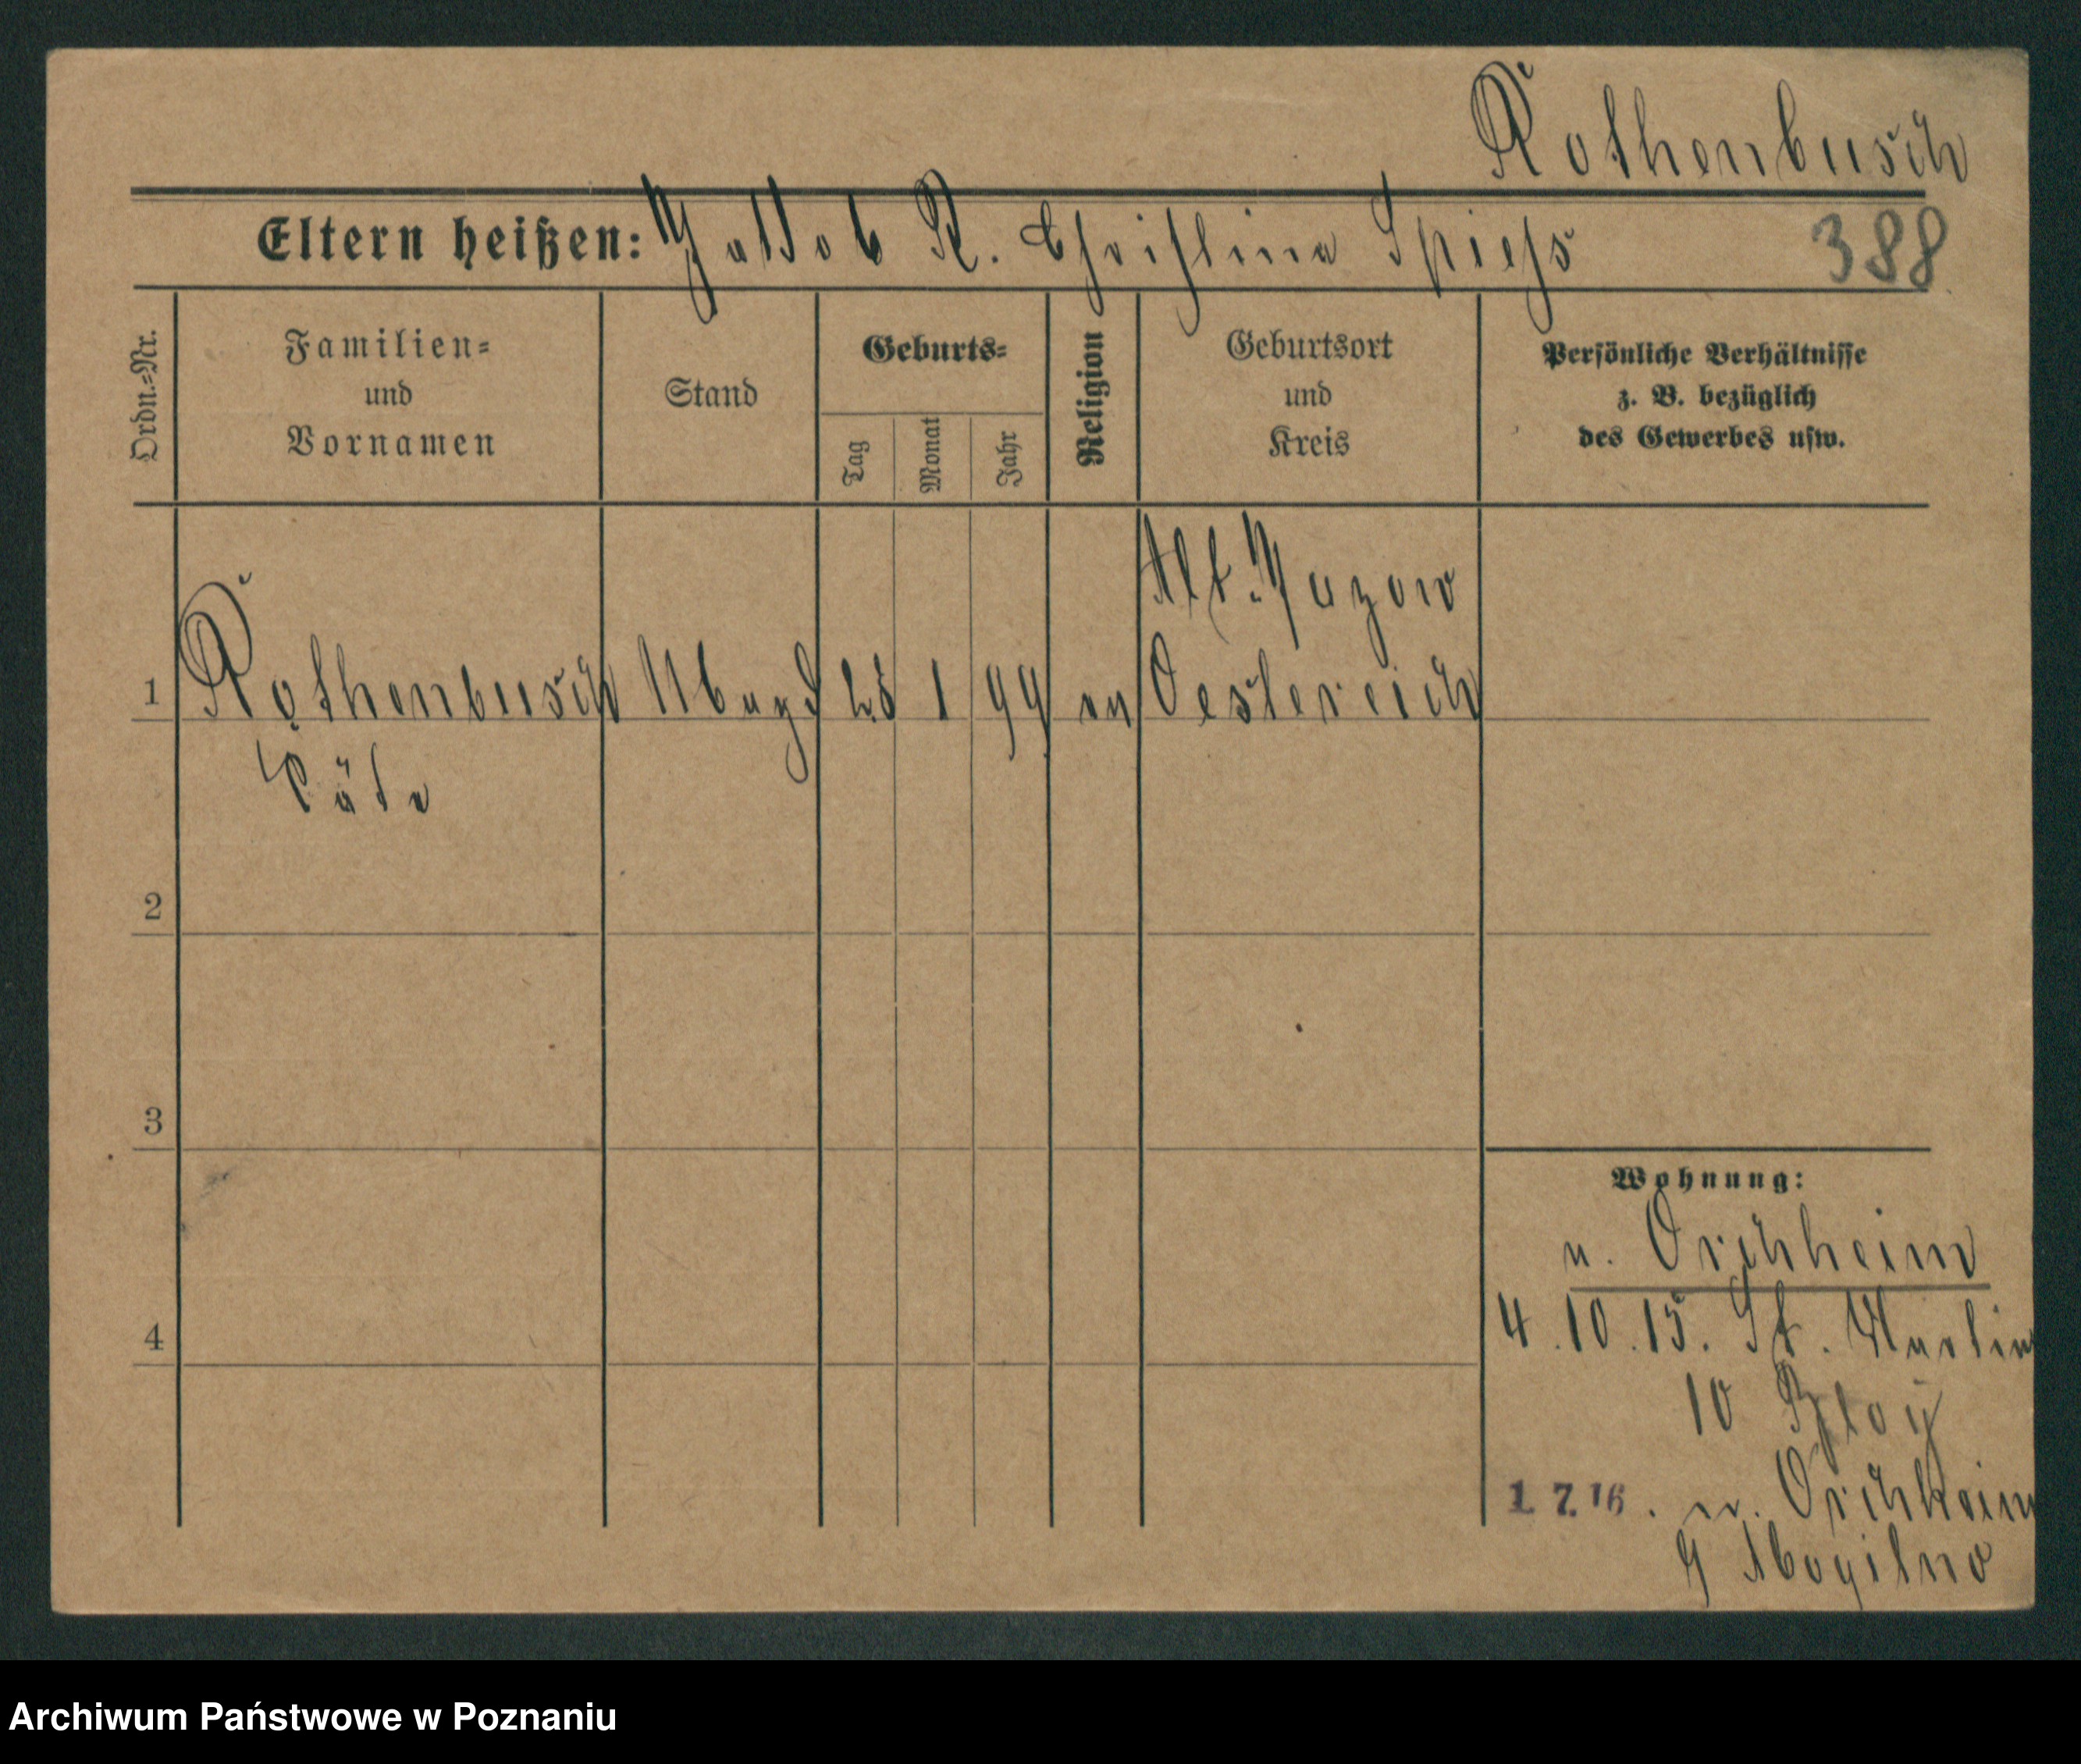 Rothenbusch
Eltern heißen: Jakob R. Christina Spiess
388
Ordn.=Nr.
Familien=
und
Vornamen
Stand
Geburts=
Tag
Monat
Jahr
Religion
Geburtsort
und
Kreis
Persönliche Verhältnisse
z. B. bezüglich
des Gewerbes usw.
Alt.Jazow
1 Rothenbusch Magd 28 1 99 ev Oestereich
Käte
2
3
4
Wohnung:
n. Orchheim
4.10.15. St. Martin
10
1. 7. 16. n. Orchheim
Mogilno
Archiwum Państwowe w Poznaniu